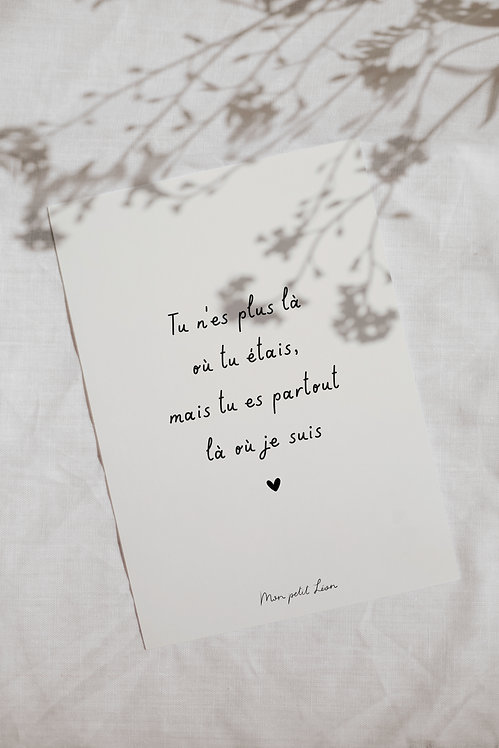 Tu n'es plus là
où tu étais,
mais tu es partout
là où je suis
Mon petit Léon